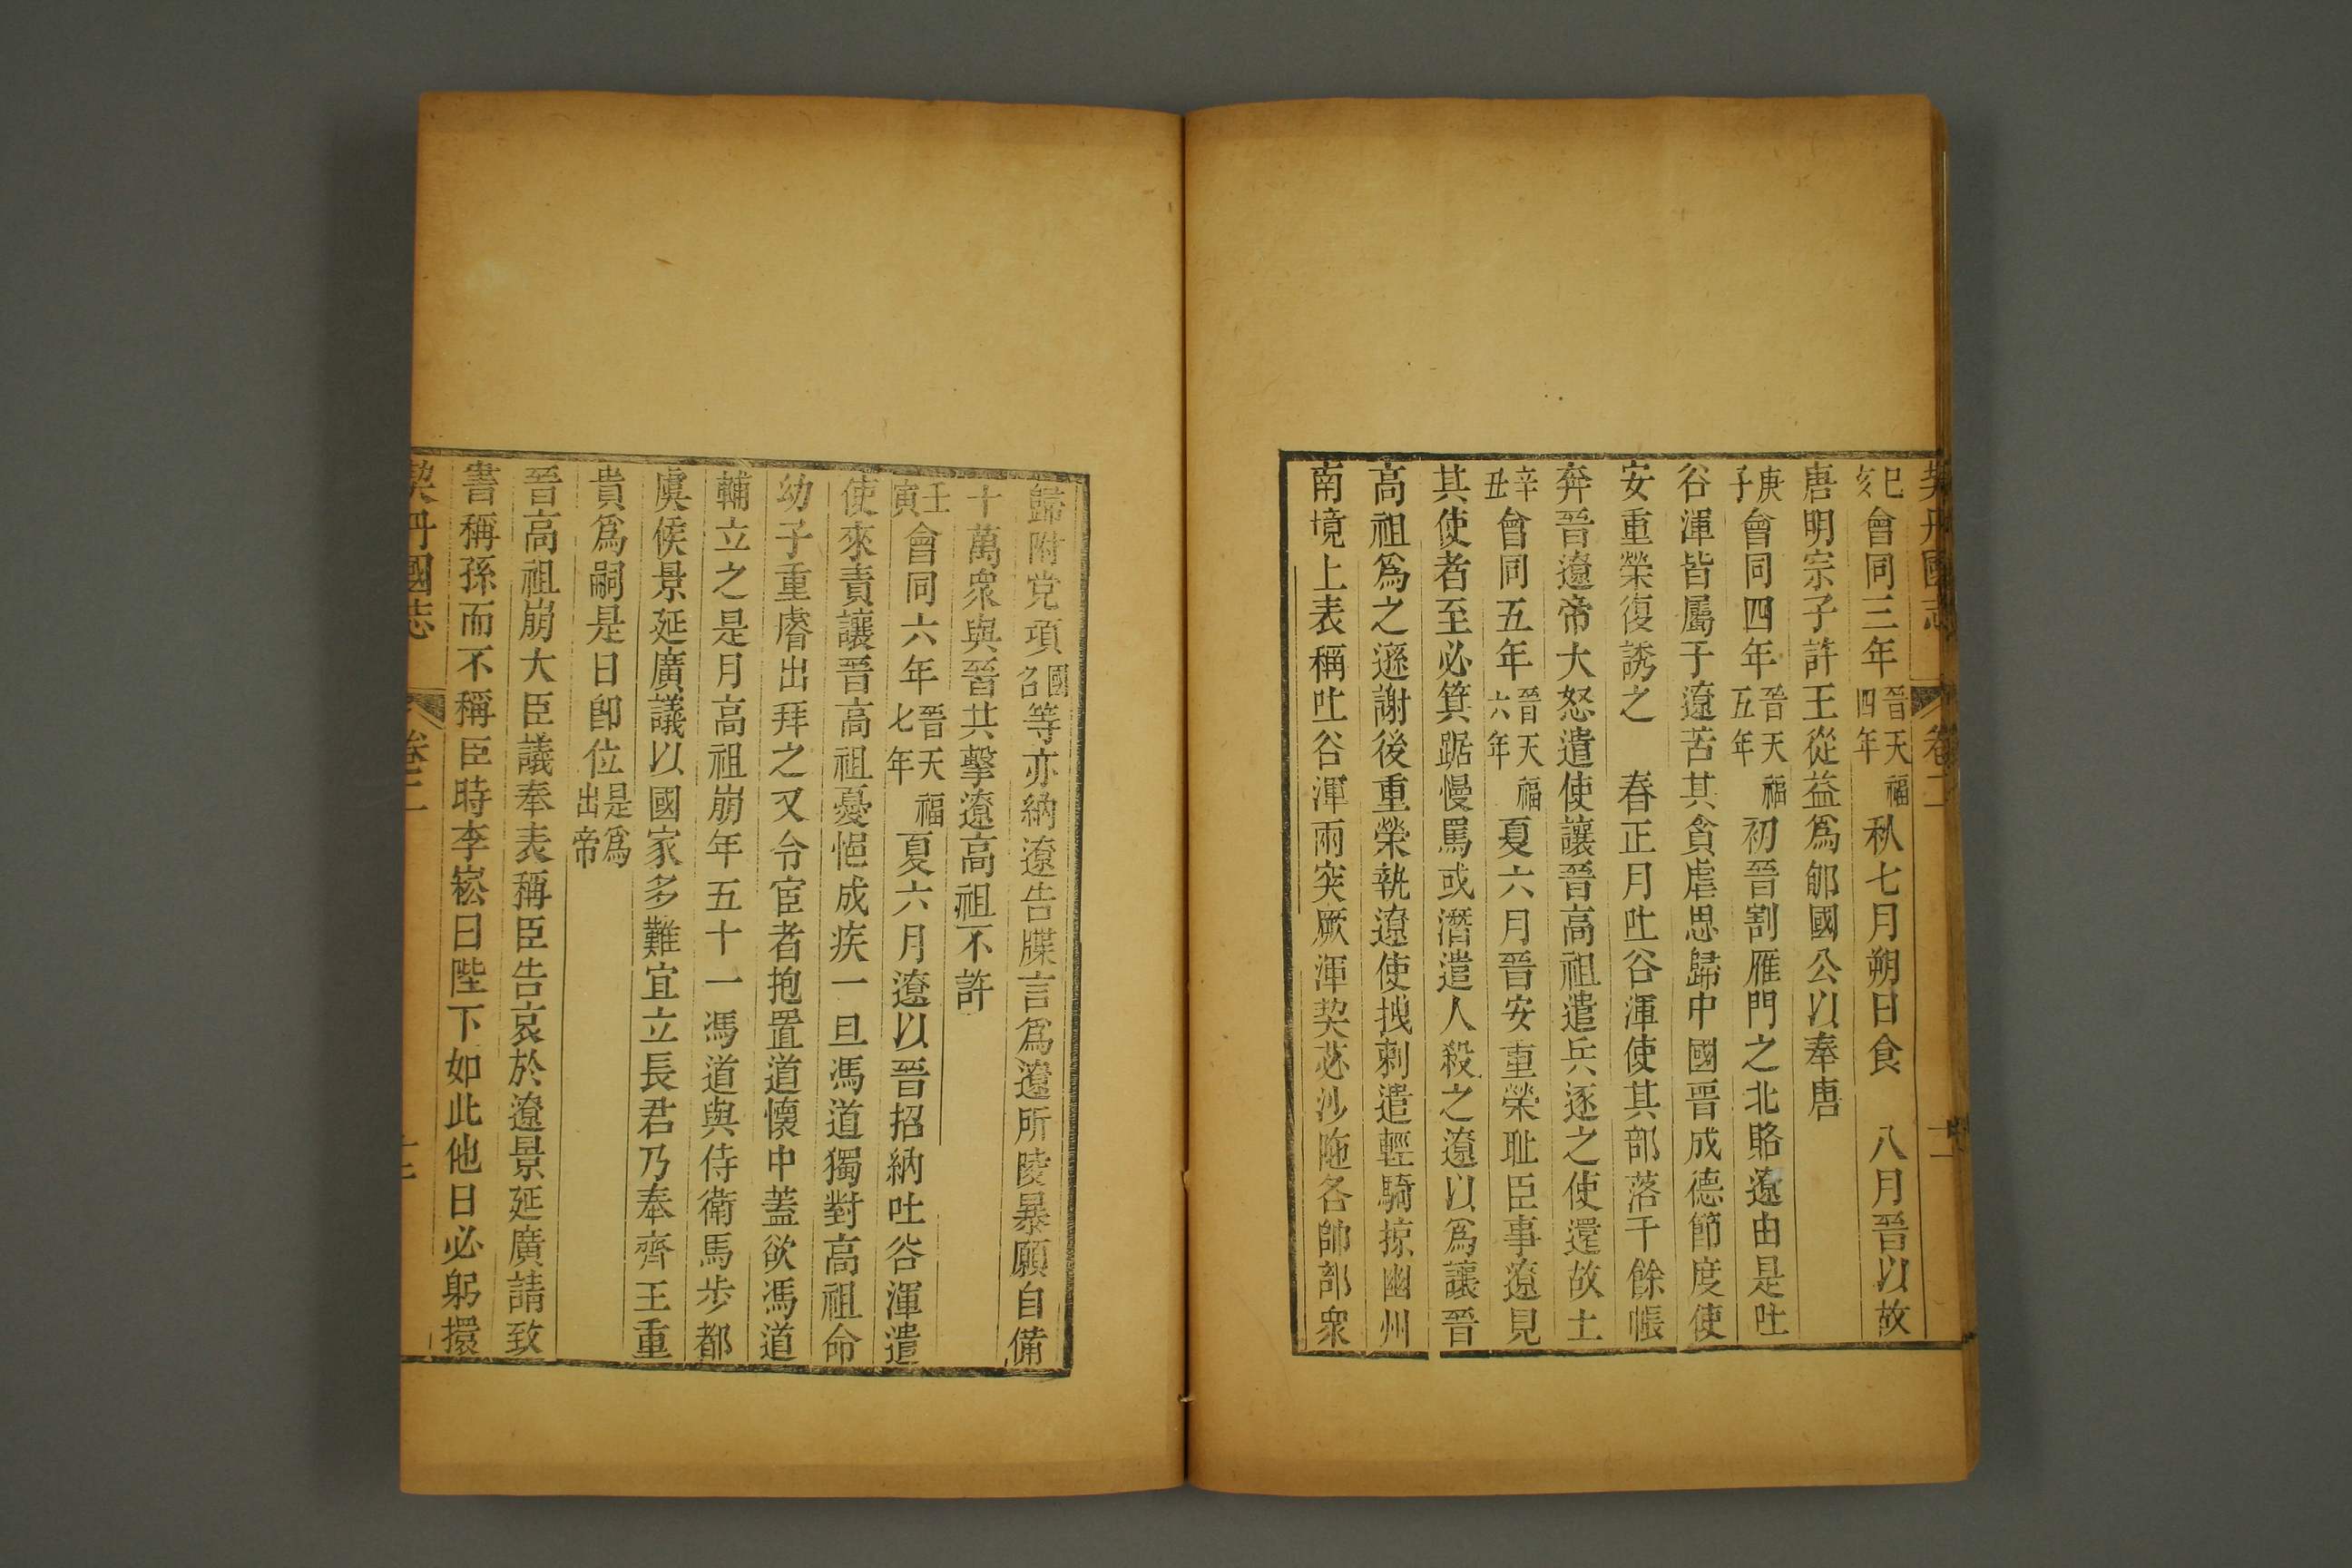 契丹國志 卷二 十一
己亥會同三年晉天福四年秋七月朔日食 八月晉以故
唐明宗子許王從益爲郇國公以奉唐
庚子會同四年晉天福五年初晉割雁門之北賂遼由是吐
谷渾皆屬于遼苦其貪虐思歸中國晉成德節度使
安重榮復誘之 春正月吐谷渾使其部落千餘帳
奔晉遼帝大怒遣使讓晉高祖遣兵逐之使還故土
辛丑會同五年晉天福六年夏六月晉安重榮耻臣事遼見
其使者至必箕踞慢罵或潛遣人殺之遼以爲讓晉
高祖爲之遜謝後重榮執遼使拽剌遣輕騎掠幽州
南境上表稱吐谷渾兩突厥渾契苾沙陁各帥部衆
歸附党項國名等亦納遼告牒言爲遼所陵暴願自備
十萬衆與晉共擊遼高祖不許
壬寅會同六年晉天福七年夏六月遼以晉招納吐谷渾遣
使來責讓晉高祖憂悒成疾一旦馮道獨對高祖命
幼子重睿出拜之又令宦者抱置道懷中蓋欲馮道
輔立之是月高祖崩年五十一馮道與侍衛馬步都
虞侯景延廣議以國家多難宜立長君乃奉齊王重
貴爲嗣是日卽位是爲出帝
晉高祖崩大臣議奉表稱臣告哀於遼景延廣請致
書稱孫而不稱臣時李崧曰陛下如此他日必躬擐
契丹國志 卷二